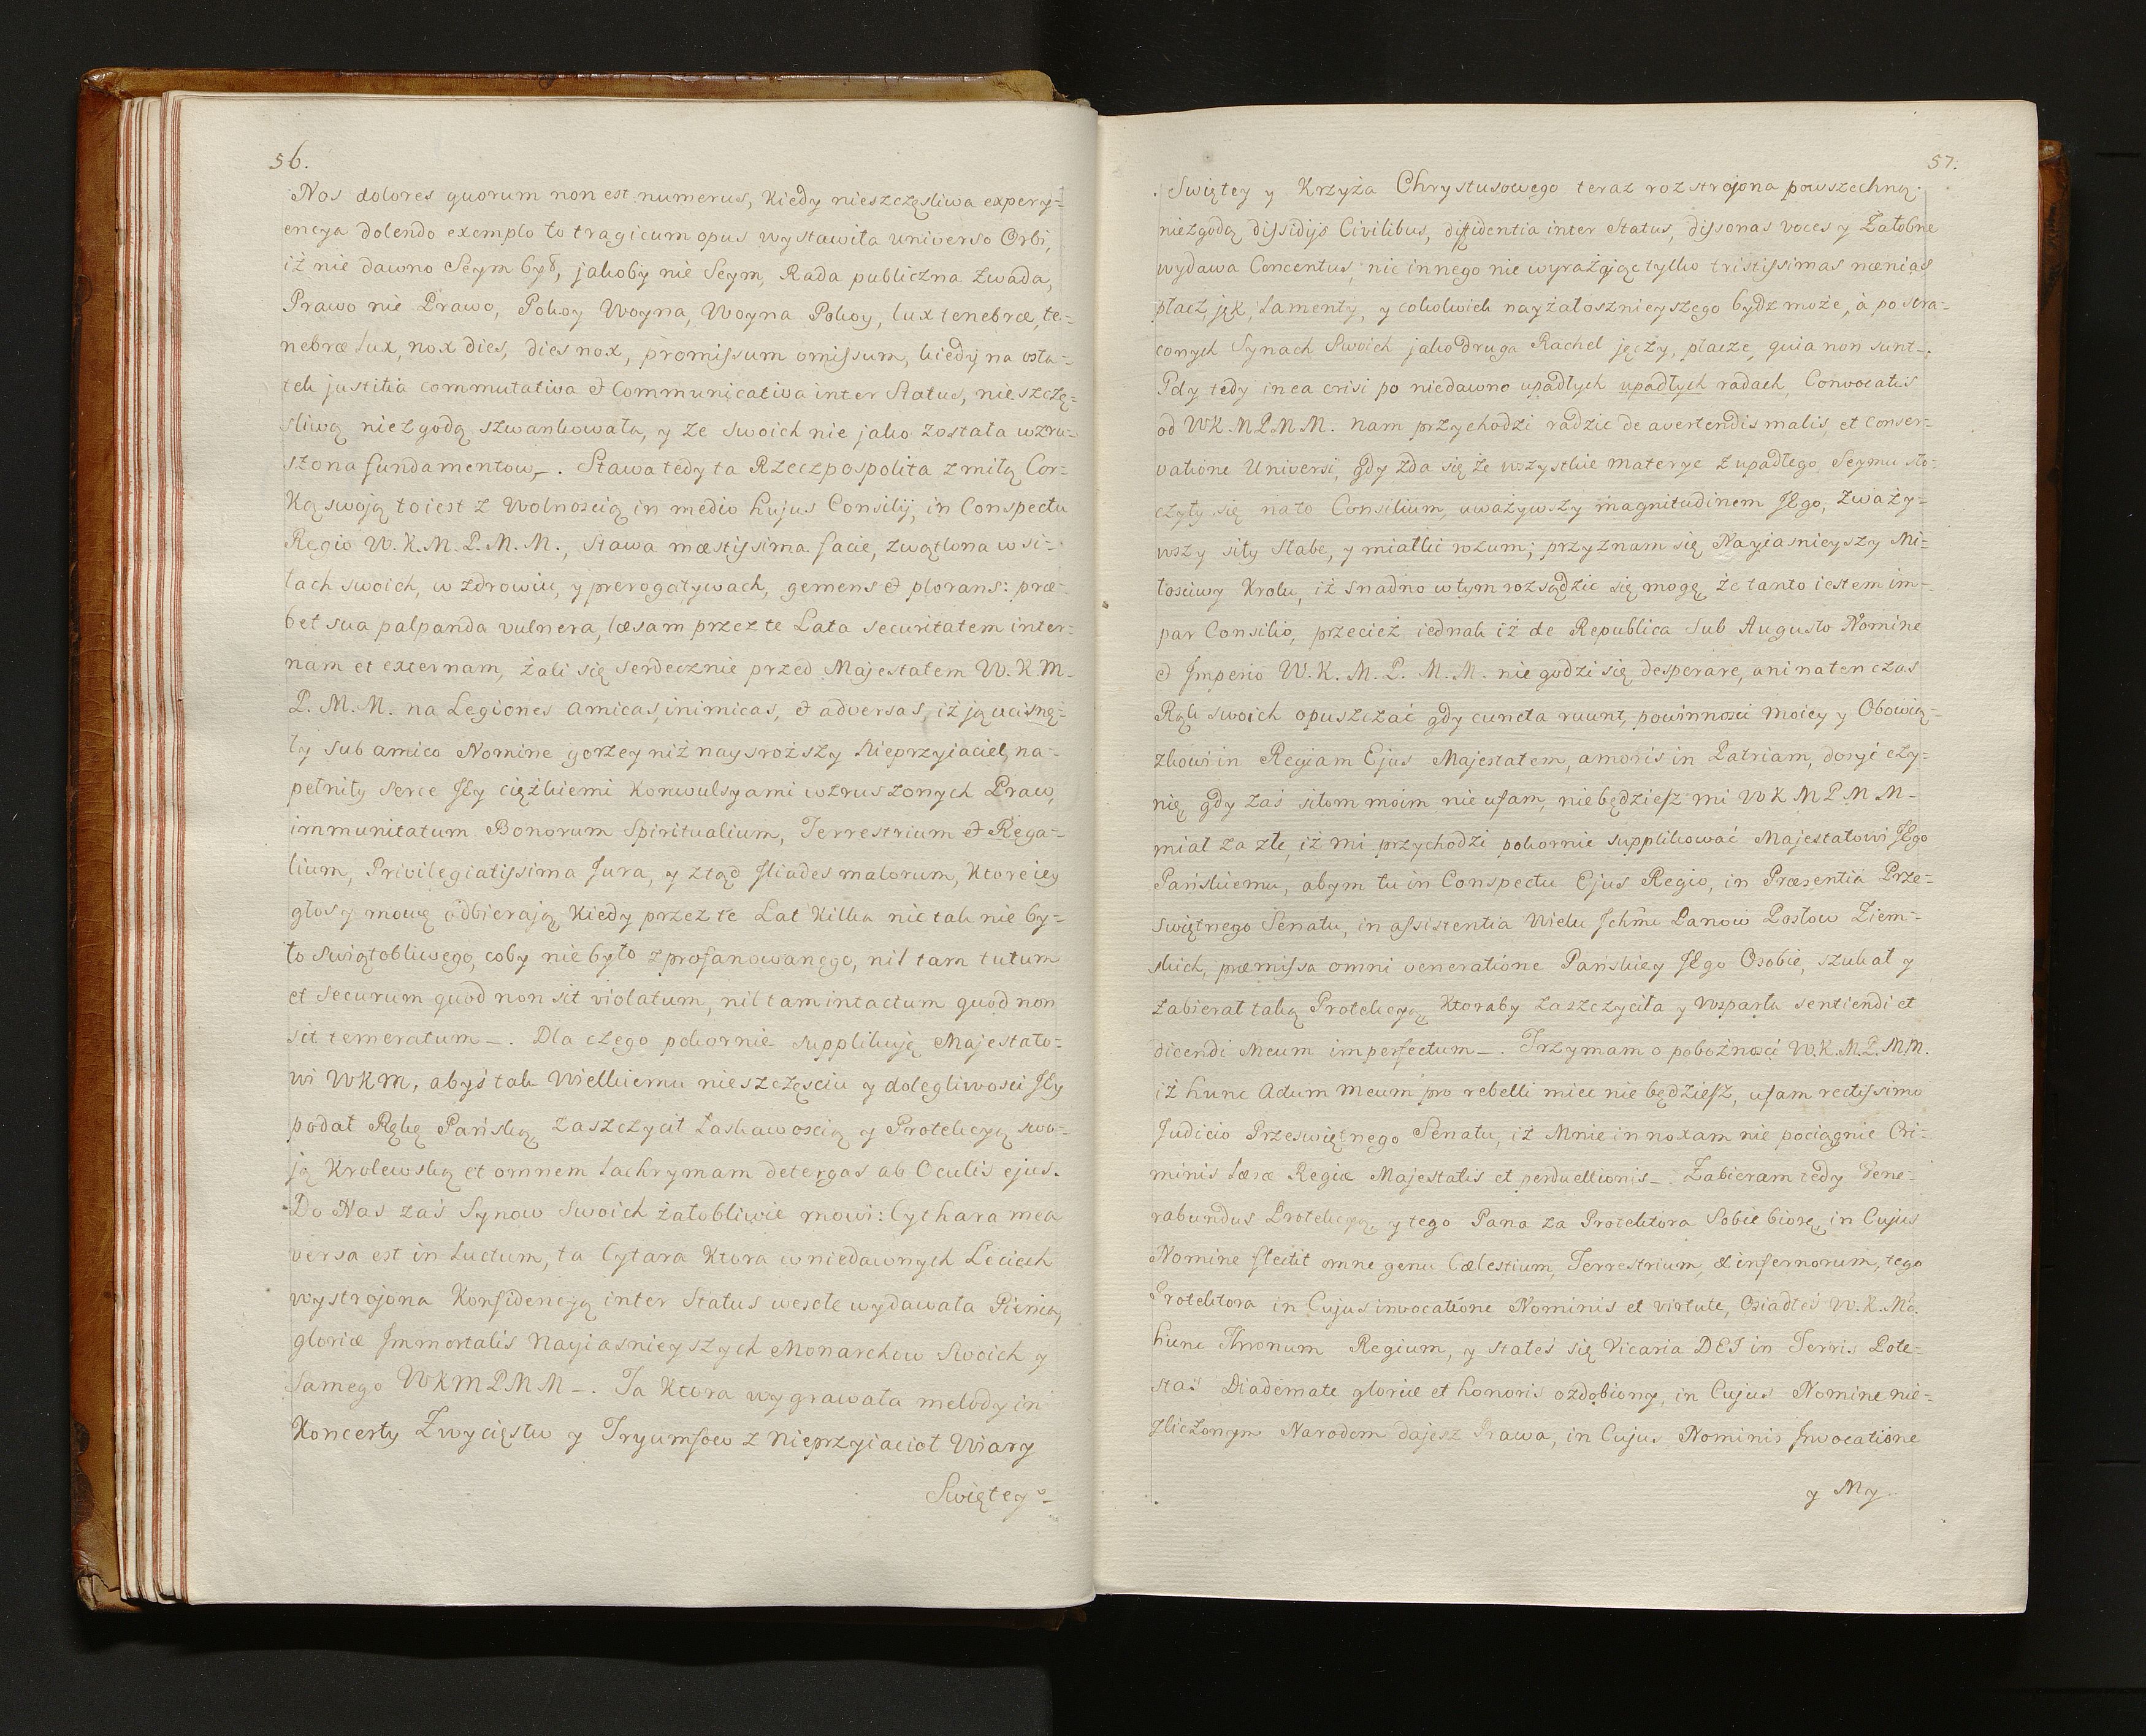 56.
Nos dolores quorum non est numerus, Kiedy nieszczęsliwa expery=
encya dolendo exemplo to tragicum opus wystawiła universo Orbi,
iż nie dawno Seym był, jakoby nie Seym, Rada publiczna Zwada,
Prawo nie Prawo, Pokoy Woyna, Woyna Pokoy, lux tenebræ, te=
nebræ lux, nox dies, dies nox, promissum omissum, kiedy na osta=
tek justitia commutativa et Communicativa inter Status, nieszczę=
sliwą niezgodą szwankowała, y ze swoich nie jako została wzru=
szona fundamentow_. Stawa tedy ta Rzeczpospolita z miłą Cor=
ką swoją to iest z Wolnoscią in medio hujus Consilij, in Conspectu
Regio W. K. M. P. M. M., Stawa mœstissima facie, zwątlona w si=
łach swoich, w zdrowiu, y prerogatywach, gemens et plorans: præ=
bet sua palpanda vulnera, læsam przez te Lata securitatem inter=
nam et externam, żali się serdecznie przed Majestatem W. K. M.
P. M. M. na Legiones amicas, inimicas, et adversas, iż ją ucisnę=
ły sub amico Nomine gorzey niż naysroższy Nieprzyiaciel, na=
pełniły serce JEy ciężkiemi Konwulsyami wzruszonych Praw,
immunitatum Bonorum Spiritualium, Terrestrium et Rega=
lium, Privilegiatissima Jura, y ztąd Iliades malorum, Ktore iey
głos y mowę odbierają Kiedy przez te Lat Kilka nic tak nie by=
ło swiątobliwego, coby nie było zprofanowanego, nil tam tutum
et securum quod non sit violatum, nil tam intactum quod non
sit temeratum_. Dla czego pokornie supplikuję Majestato=
wi WKM, abyś tak Wielkiemu nieszczęsciu y dolegliwosci JEy
podał Rękę Pańską zaszczycił Łaskawoscią y Protekcyą swo=
ją Krolewską et omnem lachrymam detergas ab Oculis ejus.
Do Nas zaś Synow Swoich żałobliwie mowi: Cythara mea
versa est in luctum, ta Cytara Ktora w niedawnych Leciech
wystrojona Konfidencyą inter Status wesołe wydawała Pienia,
gloriæ Immortalis Nayiasnieyszych Monarchow Swoich y
samego WKMPMM_. Ta Ktora wygrawała melodyin
Koncerty Zwycięstw y Tryumfow z Nieprzyiacioł Wiary
Swiętey_
57.
Swiętey y Krzyża Chrystusowego teraz rozstrojona powszechną
niezgodą dissidijs Civilibus, diffidentia inter Status, dissonas voces y Żałobne
wydawa Concentus, nic innego nie wyrażając tylko tristissimas nænias
płacz, jęk, Lamenty, y cokolwiek nayżałosznieyszego bydz może, à po stra=
conych Synach Swoich jako druga Rachel jęczy, płacze, quia non sunt_.
Gdy tedy in ea crisi po niedawno upadłych upadłych radach, Convocatis
od WK.M.P.M.M. nam przychodzi radzic de avertendis malis, et conser=
vatione Universi, gdy zda się że wszystkie materye z upadłego Seymu sto=
czyły się na to Consilium, uważywszy magnitudinem JEgo, zważy=
wszy siły słabe, y miałki rozum; przyznam się Nayiasnieyszy Mi=
łosciwy Krolu, iż snadno w tym rozsądzic się mogę, że tanto iestem im=
par Consilio, przecież iednak iż de Republica sub Augusto Nomine
et Imperio W. K. M. P. M. M. nie godzi się desperare, ani na ten czas
Rąk swoich opuszczać gdy cuncta ruunt, powinnosci moiey y Obowią=
zkowi in Regiam Ejus Majestatem, amoris in Patriam, dosyć czy=
nię, gdy zaś siłom moim nie ufam, nie będziesz mi W K M P M M.
miał za złe, iż mi przychodzi pokornie supplikować Majestatowi JEgo
Pańskiemu, abym tu in Conspectu Ejus Regio, in Præsentia Prze=
swiętnego Senatu, in assistentia Wielu Jchmc Panow Posłow Ziem=
skich, præmissa omni veneratione Pańskiey JEgo Osobie, szukał y
zabierał taką Protekcyą, Ktoraby zaszczyciła y wsparła sentiendi et
dicendi Meum imperfectum_. Trzymam o pobożnosci W.K.M.P.M.M.
iż hunc Actum Meum pro rebelli miec nie będziesz, ufam rectissimo
Judicio Przeswiętnego Senatu, iż Mnie in noxam nie pociągnie Cri=
minis læsæ Regiæ Majestatis et perduellionis_. Zabieram tedy Vene=
rabundus Protekcyą, y tego Pana za Protektora Sobie biorę, in Cujus
Nomine flectit omne genu Cælestium, Terrestrium, et infernorum, tego
Protektora in Cujus invocatione Nominis et virtute, Osiadłeś W. K. Mć.
hunc Thronum Regium, y stałeś się Vicaria DEI in Terris Pote=
stas Diademate gloriæ et honoris ozdobiony, in Cujus Nomine nie=
zliczonym Narodom dajesz Prawa, in Cujus Nominis Invocatione
y My